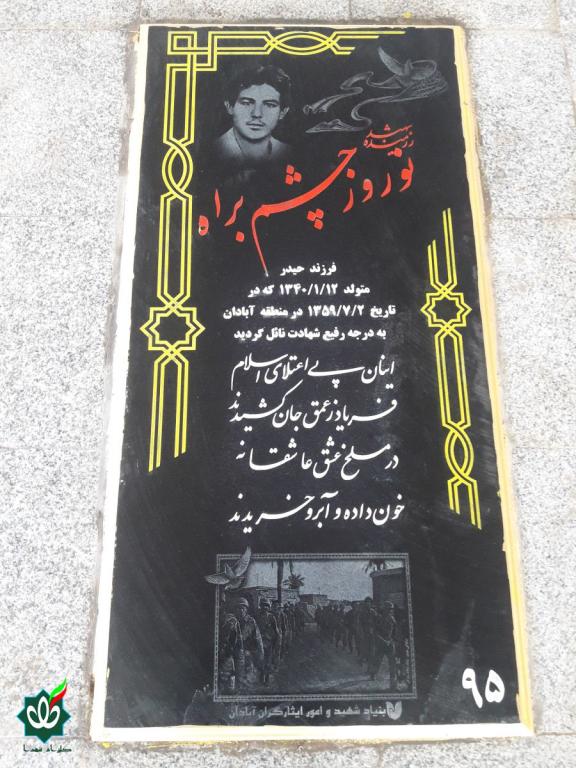 رزمنده شهید
نوروز چشم براه
فرزند حیدر
متولد ۱۳۴۰/۱/۱۲ که در
تاریخ ۱۳۵۹/۷/۲ در منطقه آبادان
به درجه رفیع شهادت نائل گردید
اینان پی اعتلای اسلام
فریاد ز عمق جان کشیدند
در مسلخ عشق عاشقانه
خون داده و آبرو خریدند
۹۵
بنیاد شهید و امور ایثارگران آبادان